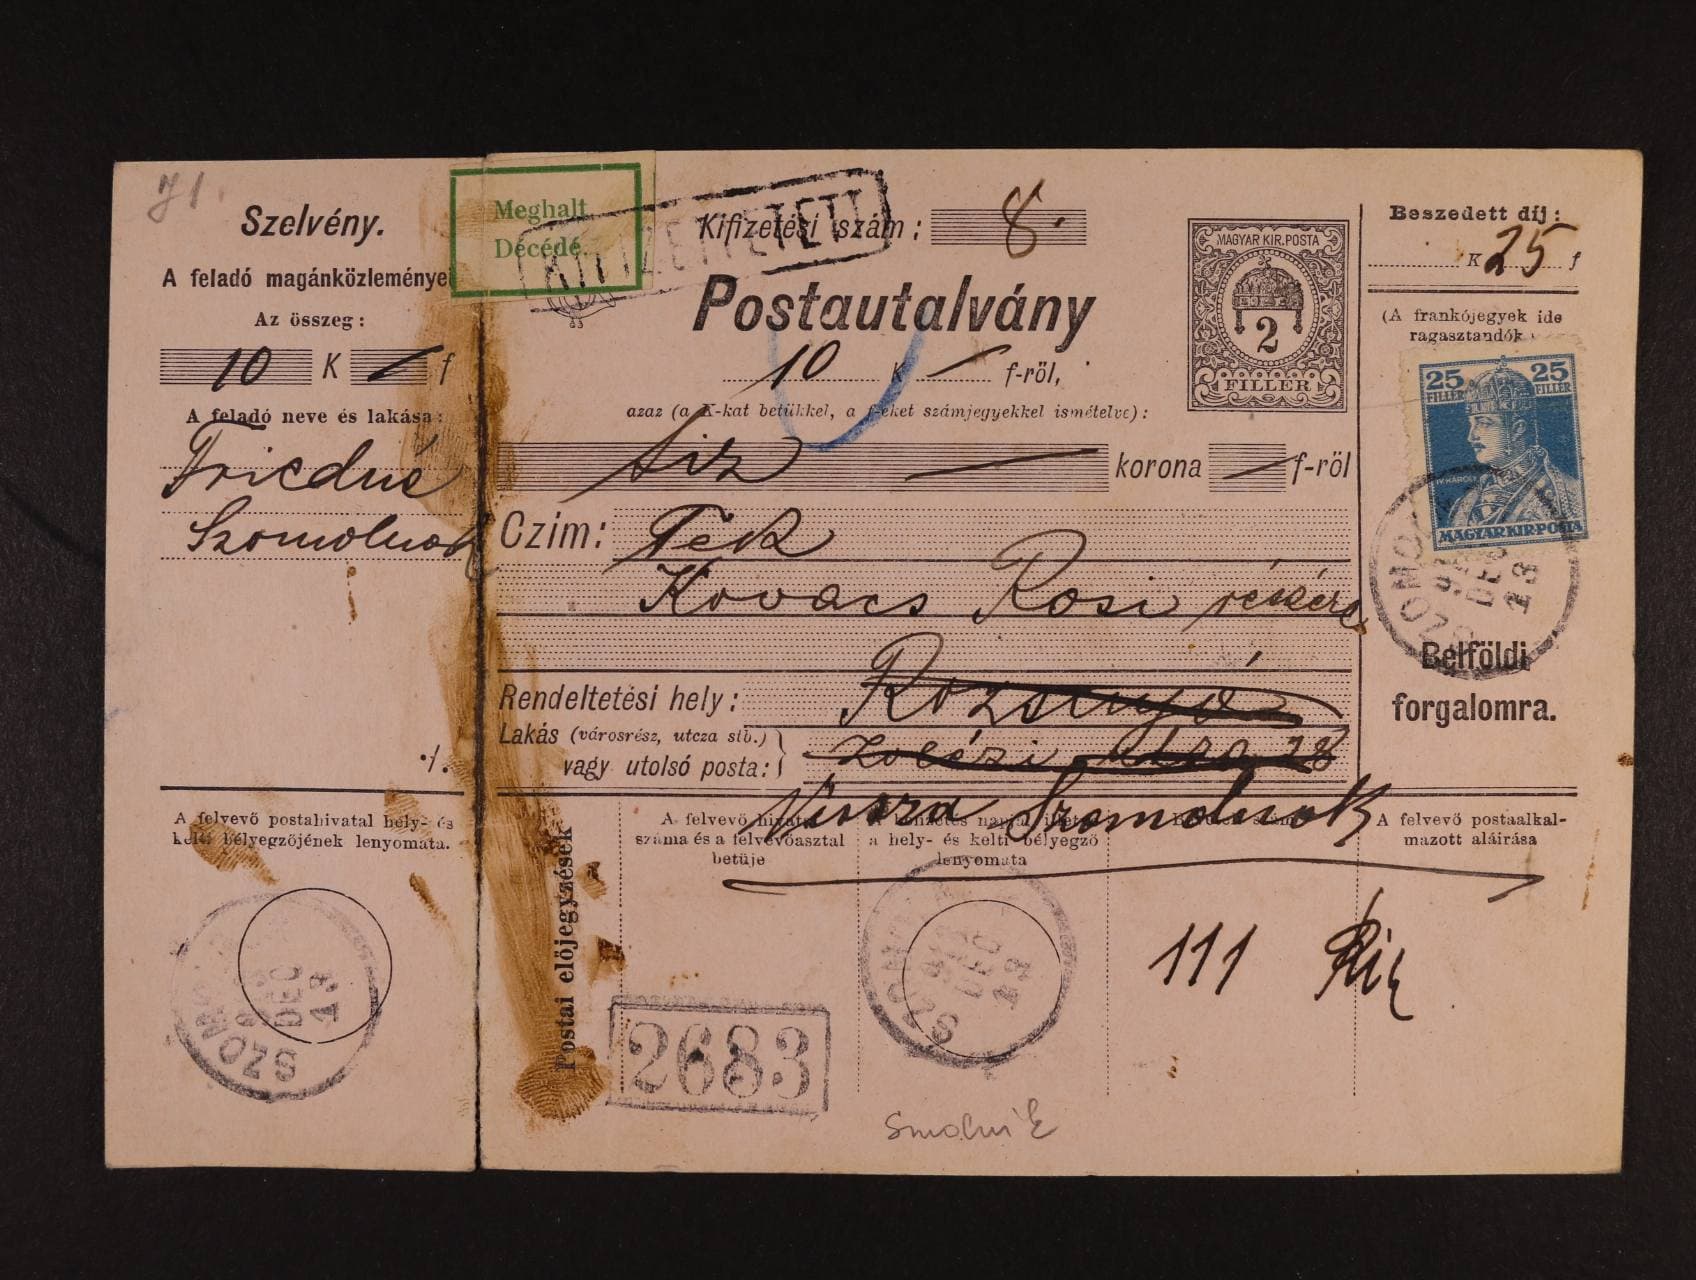 71
Szelvény.
A feladó magánközleménye
Az összeg:
10 K — f
A feladó neve és lakása:
Friedné
Szomolnok
·/.
A felvevő postahivatal hely- és
kelti bélyegzőjének lenyomata.
SZOMO
DEC
Meghalt
Décédé.
KIFIZETTETETT
Kifizetési szám: 8.
Postautalvány
10 K — f-ről,
azaz (a K-kat betükkel, a f-eket számjegyekkel ismételve):
tiz — korona — f-ről
Czim: Tek
Kovacs Rosi részére
Rendeltetési hely: Rozsnyó
Lakás (városrész, utcza stb.)
vagy utolsó posta: utca 28
Vissza Szomolnok
MAGYAR KIR. POSTA
2
FILLÉR
Beszedett díj:
K 25 f
(A frankójegyek ide
ragasztandók.)
25 25
FILLÉR FILLÉR
IV. KÁROLY
MAGYAR KIR. POSTA
SZOMO
DEC
Belföldi
forgalomra.
Postai előjegyzések
A felvevő hivatal
száma és a felvevőasztal
betüje
a hely- és kelti bélyegző
lenyomata
A felvevő postaalkal-
mazott aláirása
2683
SZOMO
DEC
111
Smolnik